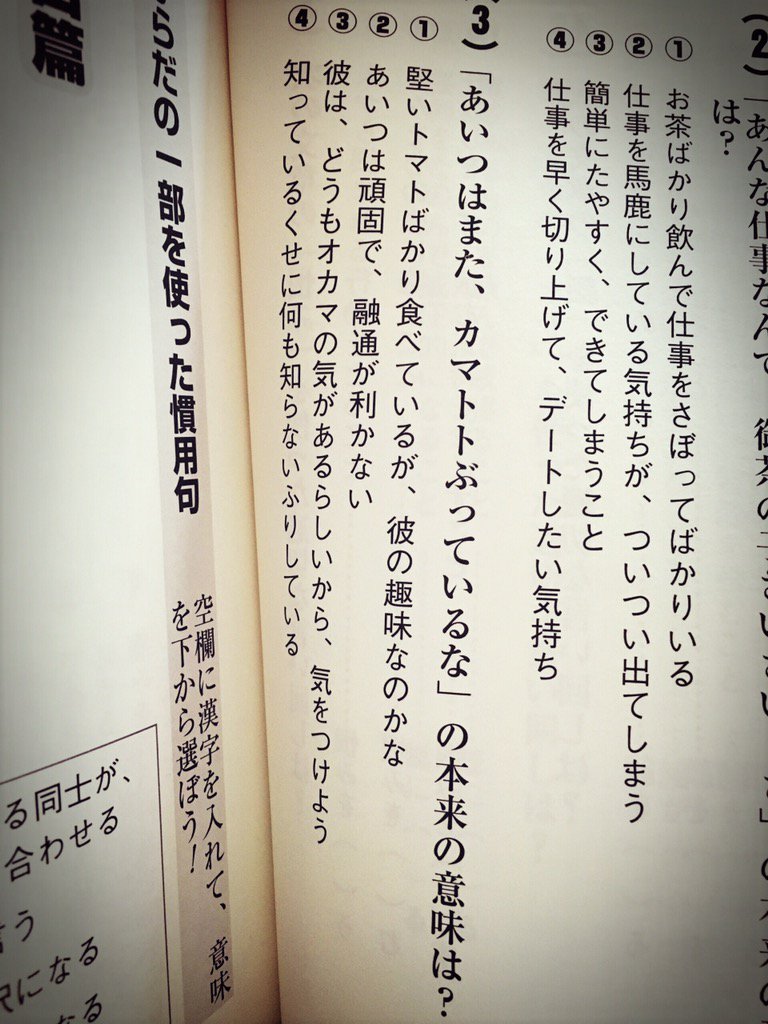 (2)「あんな仕事なんて、御茶の
は?
① お茶ばかり飲んで仕事をさぼってばかりいる
② 仕事を馬鹿にしている気持ちが、ついつい出てしまう
③ 簡単にたやすく、できてしまうこと
④ 仕事を早く切り上げて、デートしたい気持ち
(3)「あいつはまた、カマトトぶっているな」の本来の意味は?
① 堅いトマトばかり食べているが、彼の趣味なのかな
② あいつは頑固で、融通が利かない
③ 彼は、どうもオカマの気があるらしいから、気をつけよう
④ 知っているくせに何も知らないふりしている
らだの一部を使った慣用句
空欄に漢字を入れて、意味
を下から選ぼう!
篇
る同士が、
合わせる
言う
になる
なる